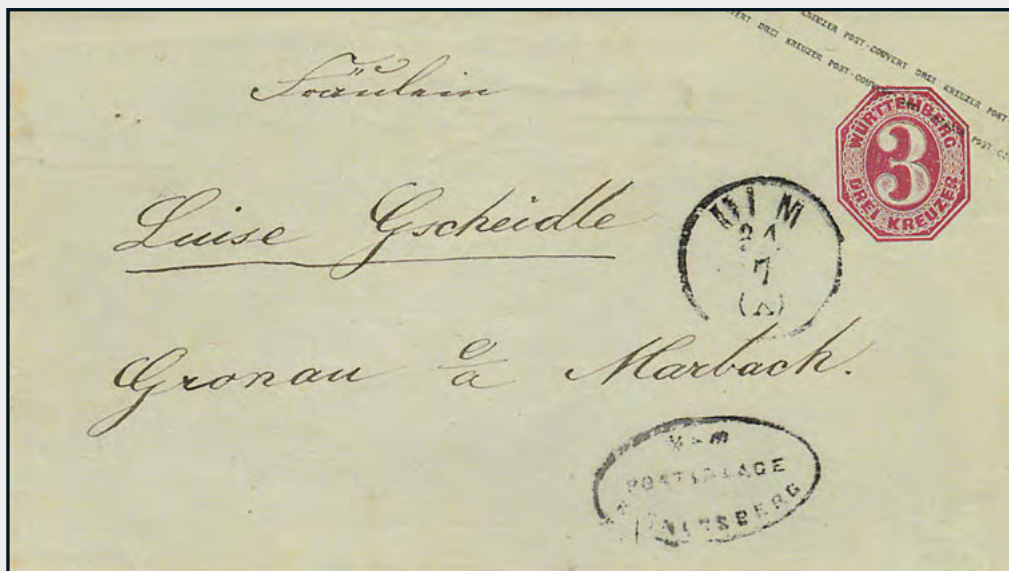 KREUZER POST-COUVERT DREI KREUZER POST
VERT DREI KREUZER POST-COUVERT
Fräulein
WÜRTTEMBERG
3
DREI KREUZER
Luise Gscheidle
ULM
7
(A)
Gronau o/a Marbach.
Ulm
POSTABLAGE